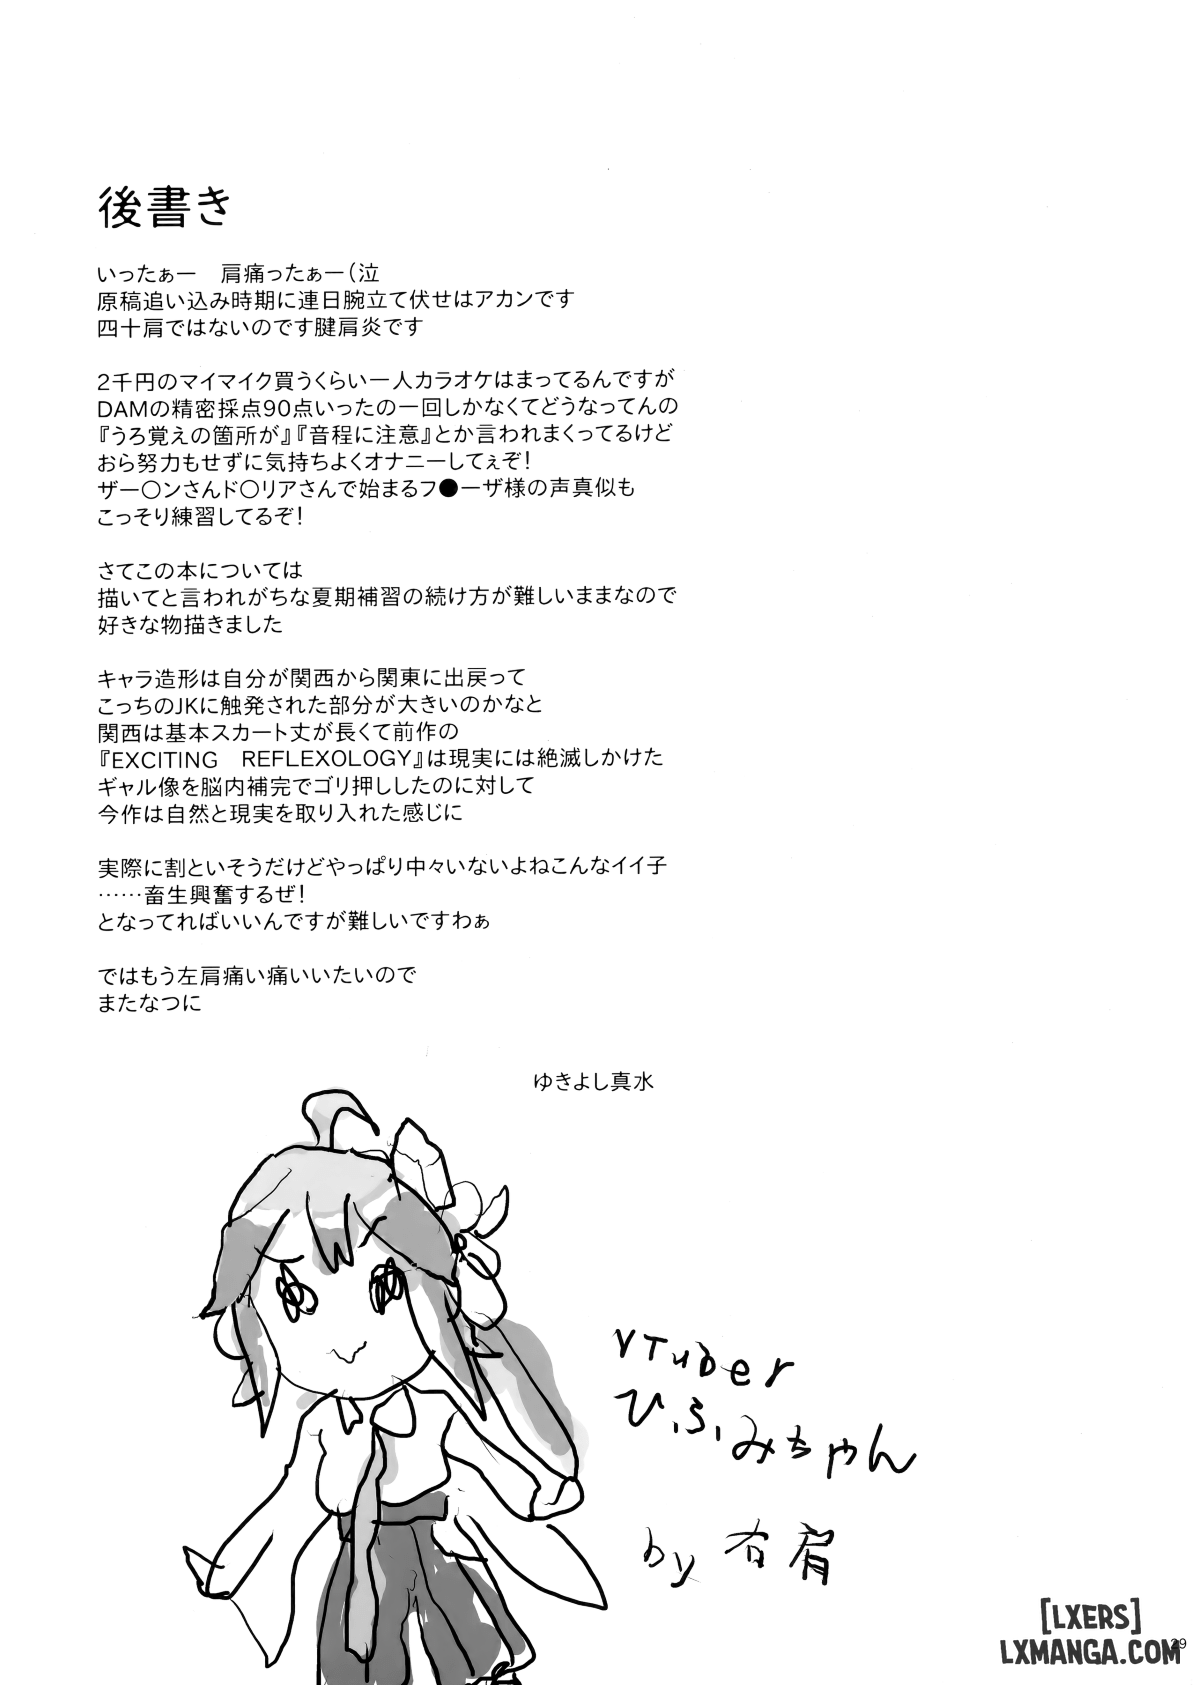 後書き
いったぁー　肩痛ったぁー(泣
原稿追い込み時期に連日腕立て伏せはアカンです
四十肩ではないのです腱肩炎です
2千円のマイマイク買うくらい一人カラオケはまってるんですが
DAMの精密採点90点いったの一回しかなくてどうなってんの
『うろ覚えの箇所が』『音程に注意』とか言われまくってるけど
おら努力もせずに気持ちよくオナニーしてぇぞ!
ザー〇ンさんド〇リアさんで始まるフ●ーザ様の声真似も
こっそり練習してるぞ!
さてこの本については
描いてと言われがちな夏期補習の続け方が難しいままなので
好きな物描きました
キャラ造形は自分が関西から関東に出戻って
こっちのJKに触発された部分が大きいのかなと
関西は基本スカート丈が長くて前作の
『EXCITING　REFLEXOLOGY』は現実には絶滅しかけた
ギャル像を脳内補完でゴリ押ししたのに対して
今作は自然と現実を取り入れた感じに
実際に割といそうだけどやっぱり中々いないよねこんなイイ子
……畜生興奮するぜ!
となってればいいんですが難しいですわぁ
ではもう左肩痛い痛いいたいので
またなつに
ゆきよし真水
VTuber
ひふみちゃん
by 右肩
[LXERS]
LXMANGA.COM
29